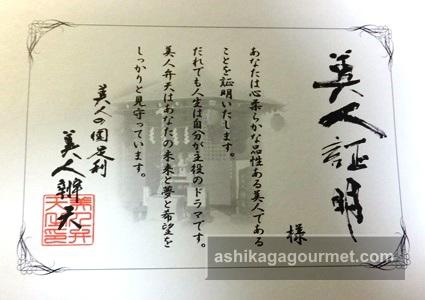 美人証明
様
あなたは心柔らかな品性ある美人である
ことを証明いたします。
だれでも人生は自分が主役のドラマです。
美人弁天はあなたの未来と夢と希望を
しっかりと見守っています。
美人の国足利
美人辨天
ashikagagourmet.com